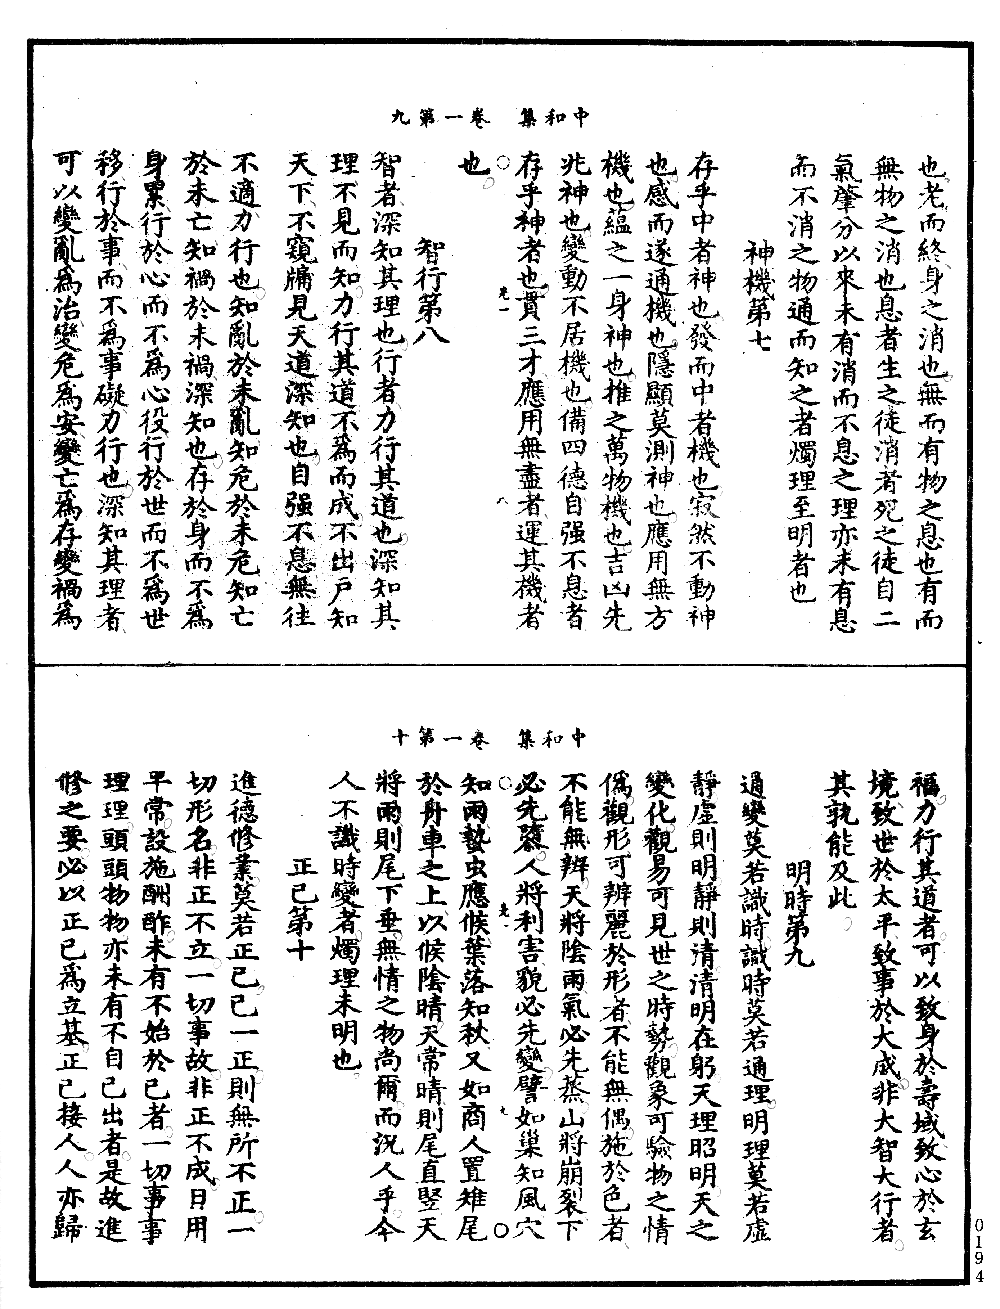 中和集　卷一第九
也老而終身之消也無而有物之息也有而
無物之消也息者生之徒消者死之徒自二
氣肇分以來未有消而不息之理亦未有息
而不消之物通而知之者燭理至明者也
神機第七
存乎中者神也發而中者機也寂然不動神
也感而遂通機也隱顯莫測神也應用無方
機也蘊之一身神也推之萬物機也吉凶先
兆神也變動不居機也備四德自強不息者
存乎神者也貫三才應用無盡者運其機者
光一
八
也
智行第八
智者深知其理也行者力行其道也深知其
理不見而知力行其道不爲而成不出戶知
天下不窺牖見天道深知也自強不息無往
不適力行也知亂於未亂知危於未危知亡
於未亡知禍於未禍深知也存於身而不爲
身累行於心而不爲心役行於世而不爲世
移行於事而不爲事礙力行也深知其理者
可以變亂爲治變危爲安變亡爲存變禍爲
中和集　卷一第十
福力行其道者可以致身於壽域致心於玄
境致世於太平致事於大成非大智大行者
其孰能及此
明時第九
通變莫若識時識時莫若通理明理莫若虛
靜虛則明靜則清清明在躬天理昭明天之
變化觀易可見世之時勢觀象可驗物之情
僞觀形可辨麗於形者不能無偶施於色者
不能無辨天將陰雨氣必先蒸山將崩裂下
必先隳人將利害貌必先變譬如巢知風穴
光一
九
知雨蟄虫應候葉落知秋又如商人置雉尾
於舟車之上以候陰晴天常晴則尾直豎天
將雨則尾下垂無情之物尚爾而況人乎今
人不識時變者燭理未明也
正己第十
進德修業莫若正己己一正則無所不正一
切形名非正不立一切事故非正不成日用
平常設施酬酢未有不始於己者一切事事
理理頭頭物物亦未有不自己出者是故進
修之要必以正己爲立基正己接人人亦歸
0194